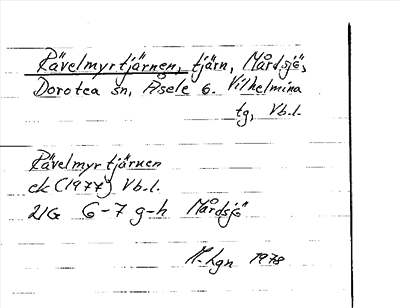 Rävelmyrtjärnen, tjärn, Mårdsjö,
Dorotea sn, Åsele 6. Vilhelmina
tg, Vb.l.
Rävelmyrtjärnen
ek (1977) Vb.l.
21G 6-7 g-h Mårdsjö
M. Lgn 1978